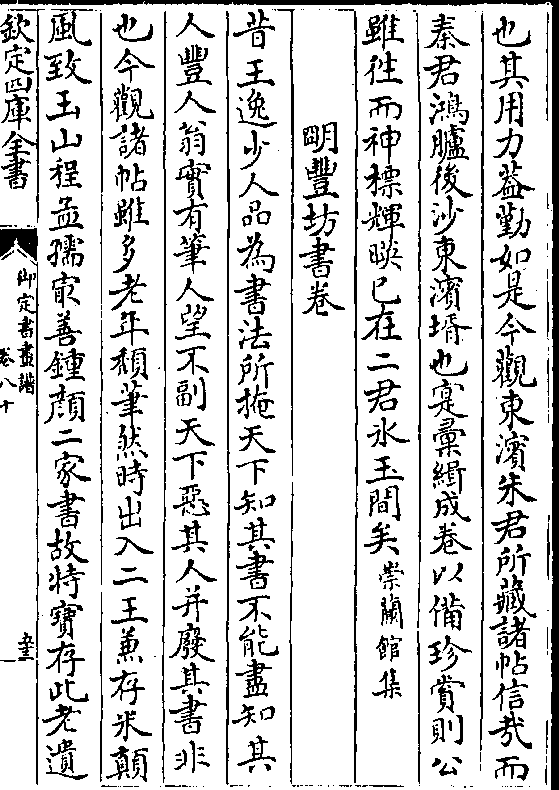 也其用力益勤如是今觀東濱朱君所藏諸帖信哉而
秦君鴻臚後沙東濱壻也寔彙緝成卷以備珍賞則公
雖徃而神標輝暎已在二君氷玉間矣崇蘭館集
明豐坊書卷
昔王逸少人品為書法所掩天下知其書不能盡知其
人豐人翁實有筆人望不副天下惡其人并廢其書非
也今觀諸帖雖多老年頽筆然時出入二王兼存米顛
風致玉山程孟孺㝡善鍾顔二家書故特寶存此老遺
欽定四庫全書
御定書畫譜
卷八十